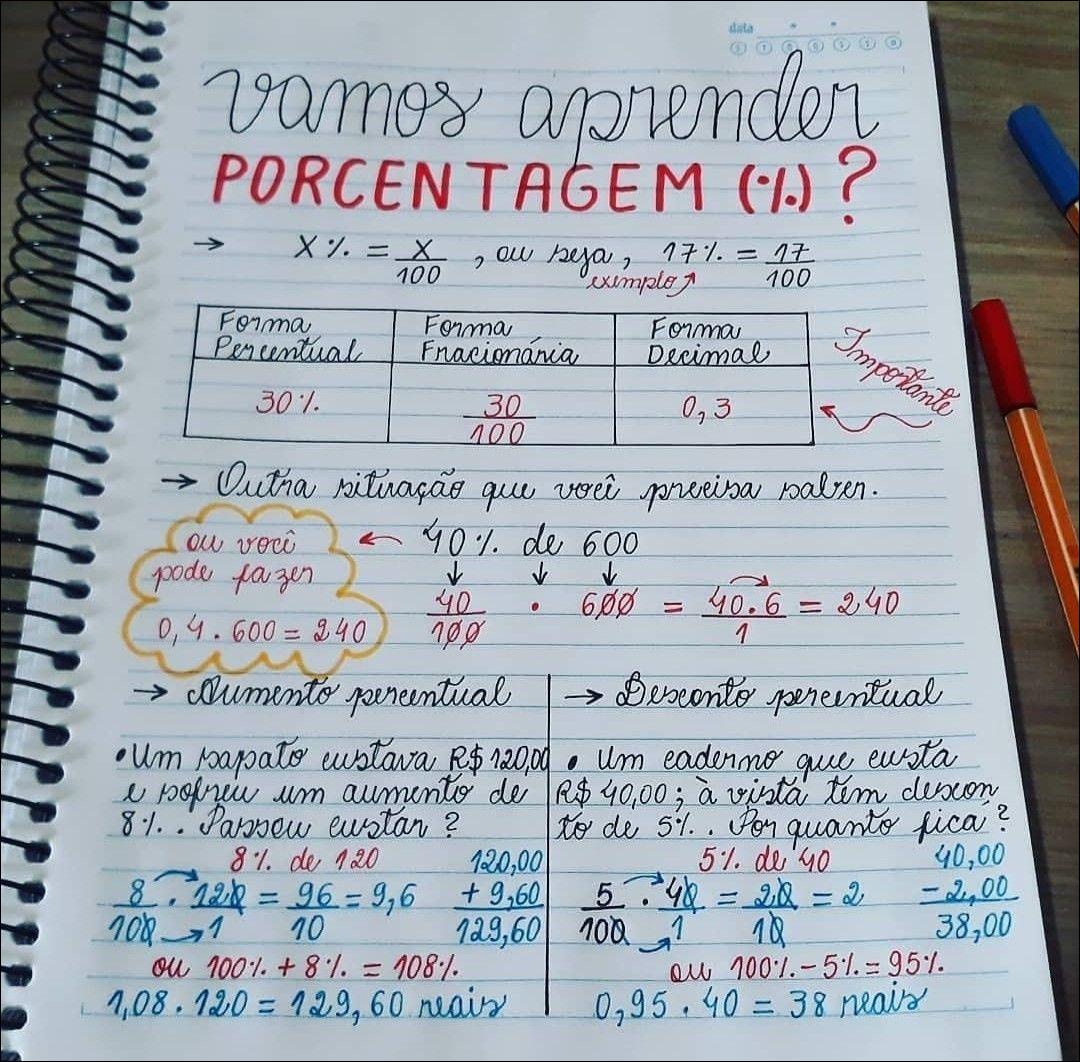 data
vamos aprender
PORCENTAGEM (%) ?
→ X% = X/100 , ou seja, 17% = 17/100
exemplo↗
Forma Percentual | Forma Fracionária | Forma Decimal
30% | 30/100 | 0,3
Importante
→ Outra situação que você precisa saber.
ou você ← 40% de 600
pode fazer ↓ ↓ ↓
0,4 . 600 = 240
40/100 . 600 = 40.6/1 = 240
→ Aumento percentual
• Um sapato custava R$ 120,00
e sofreu um aumento de
8%. Passou custar ?
8% de 120
8/100 . 120/1 = 96/10 = 9,6
120,00
+ 9,60
129,60
ou 100% + 8% = 108%
1,08 . 120 = 129,60 reais
→ Desconto percentual
• Um caderno que custa
R$ 40,00; à vista têm descon
to de 5%. Por quanto fica?
5% de 40
5/100 . 40/1 = 20/10 = 2
40,00
- 2,00
38,00
ou 100% - 5% = 95%
0,95 . 40 = 38 reais